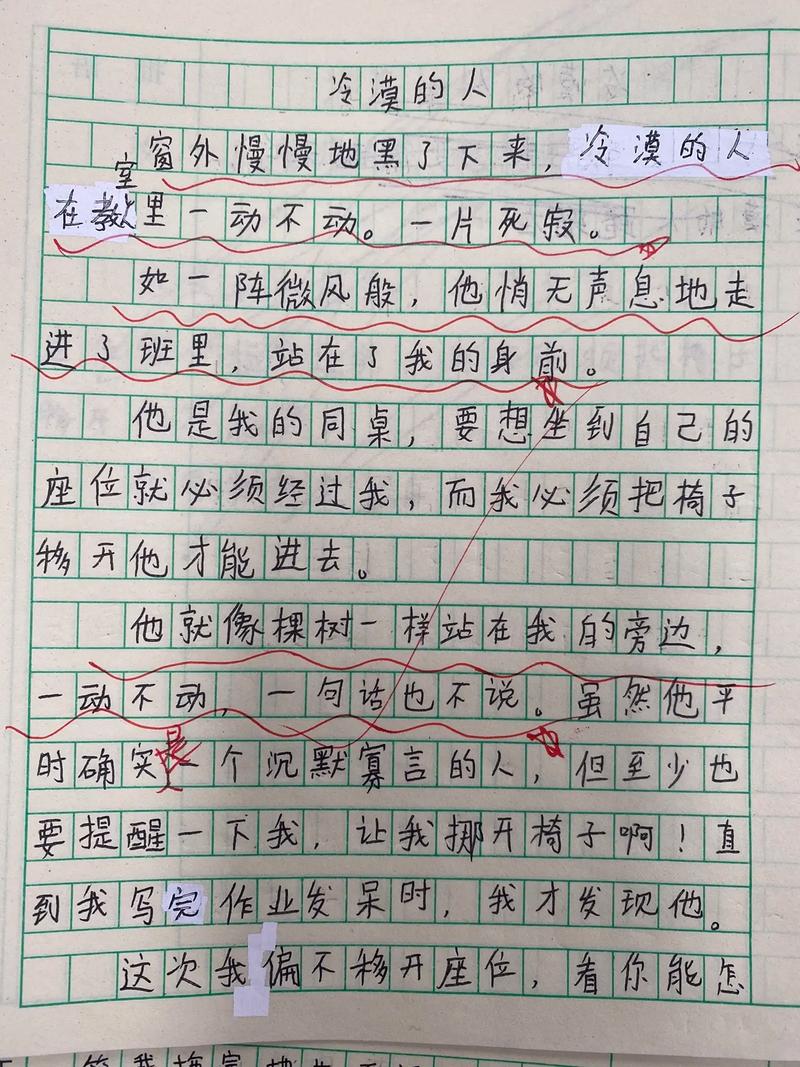 冷漠的人
窗外慢慢地黑了下来，冷漠的人
在教室里一动不动。一片死寂。
如一阵微风般，他悄无声息地走
进了班里，站在了我的身前。
他是我的同桌，要想坐到自己的
座位就必须经过我，而我必须把椅子
移开他才能进去。
他就像棵树一样站在我的旁边，
一动不动，一句话也不说。虽然他平
时确实是一个沉默寡言的人，但至少也
要提醒一下我，让我挪开椅子啊！直
到我写完作业发呆时，我才发现他。
这次我偏不移开座位，看你能怎